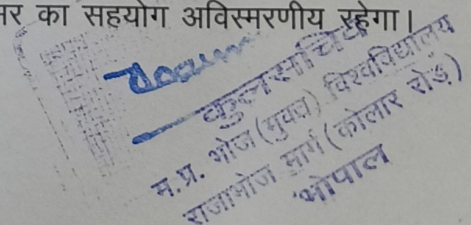 का सहयोग अविस्मरणीय रहेगा।
कुलसचिव
म.प्र. भोज (मुक्त) विश्वविद्यालय
राजाभोज मार्ग (कोलार रोड)
भोपाल